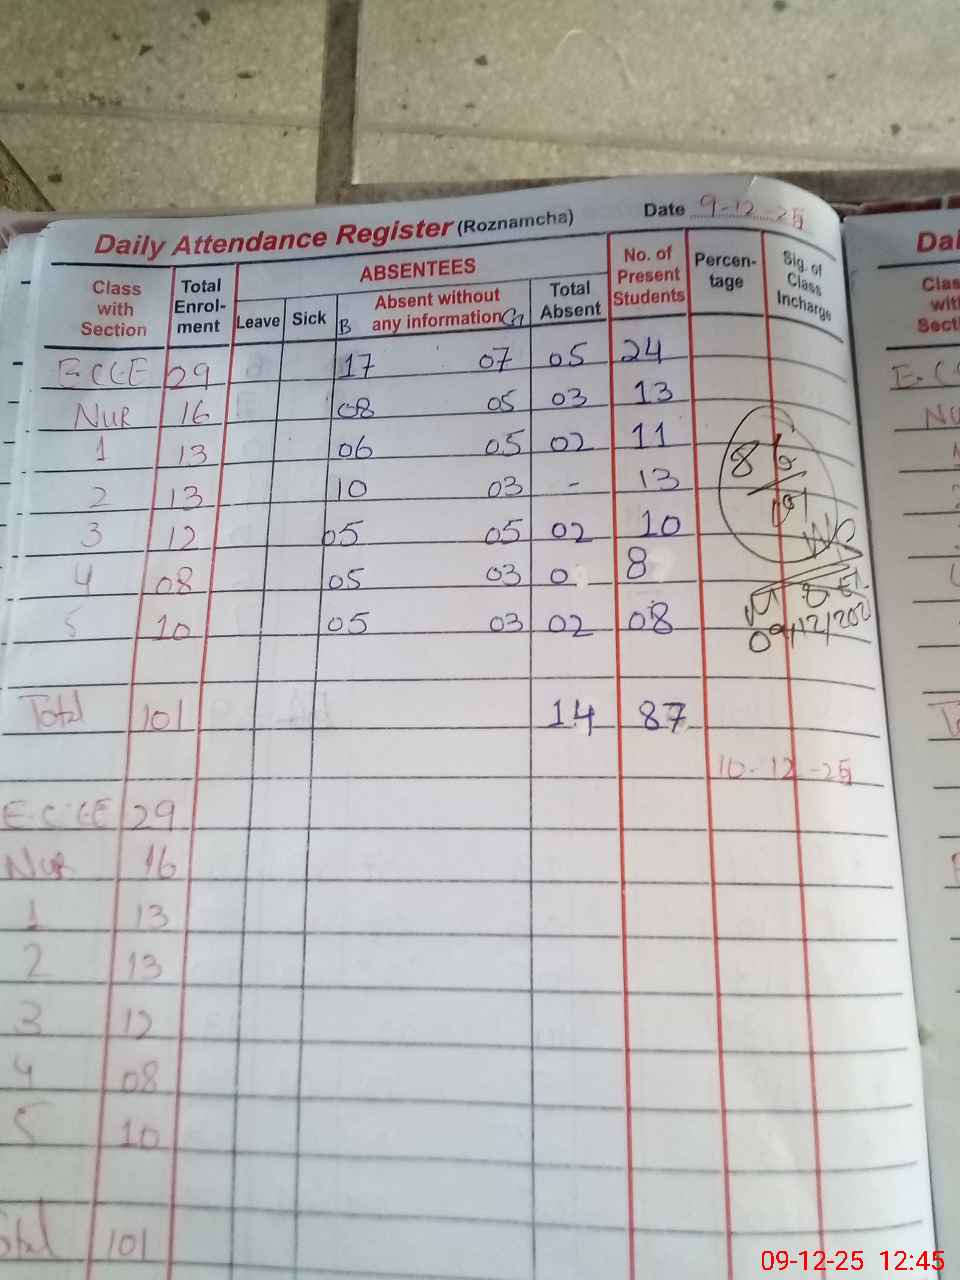 Daily Attendance Register (Roznamcha) Date 9-12-25
Class with Section Total Enrol-ment ABSENTEES Leave Sick B Absent without any information G Total Absent No. of Present Students Percen-tage Sig. of Class Incharge
E.C.C.E 29 17 07 05 24
NUR 16 08 05 03 13
1 13 06 05 02 11
2 13 10 03 - 13
3 12 05 05 02 10
4 08 05 03 0 8
5 10 05 03 02 08
Total 101 14 87
09/12/202
10-12-25
E.C.C.E 29
NUR 16
1 13
2 13
3 12
4 08
5 10
Total 101
09-12-25 12:45